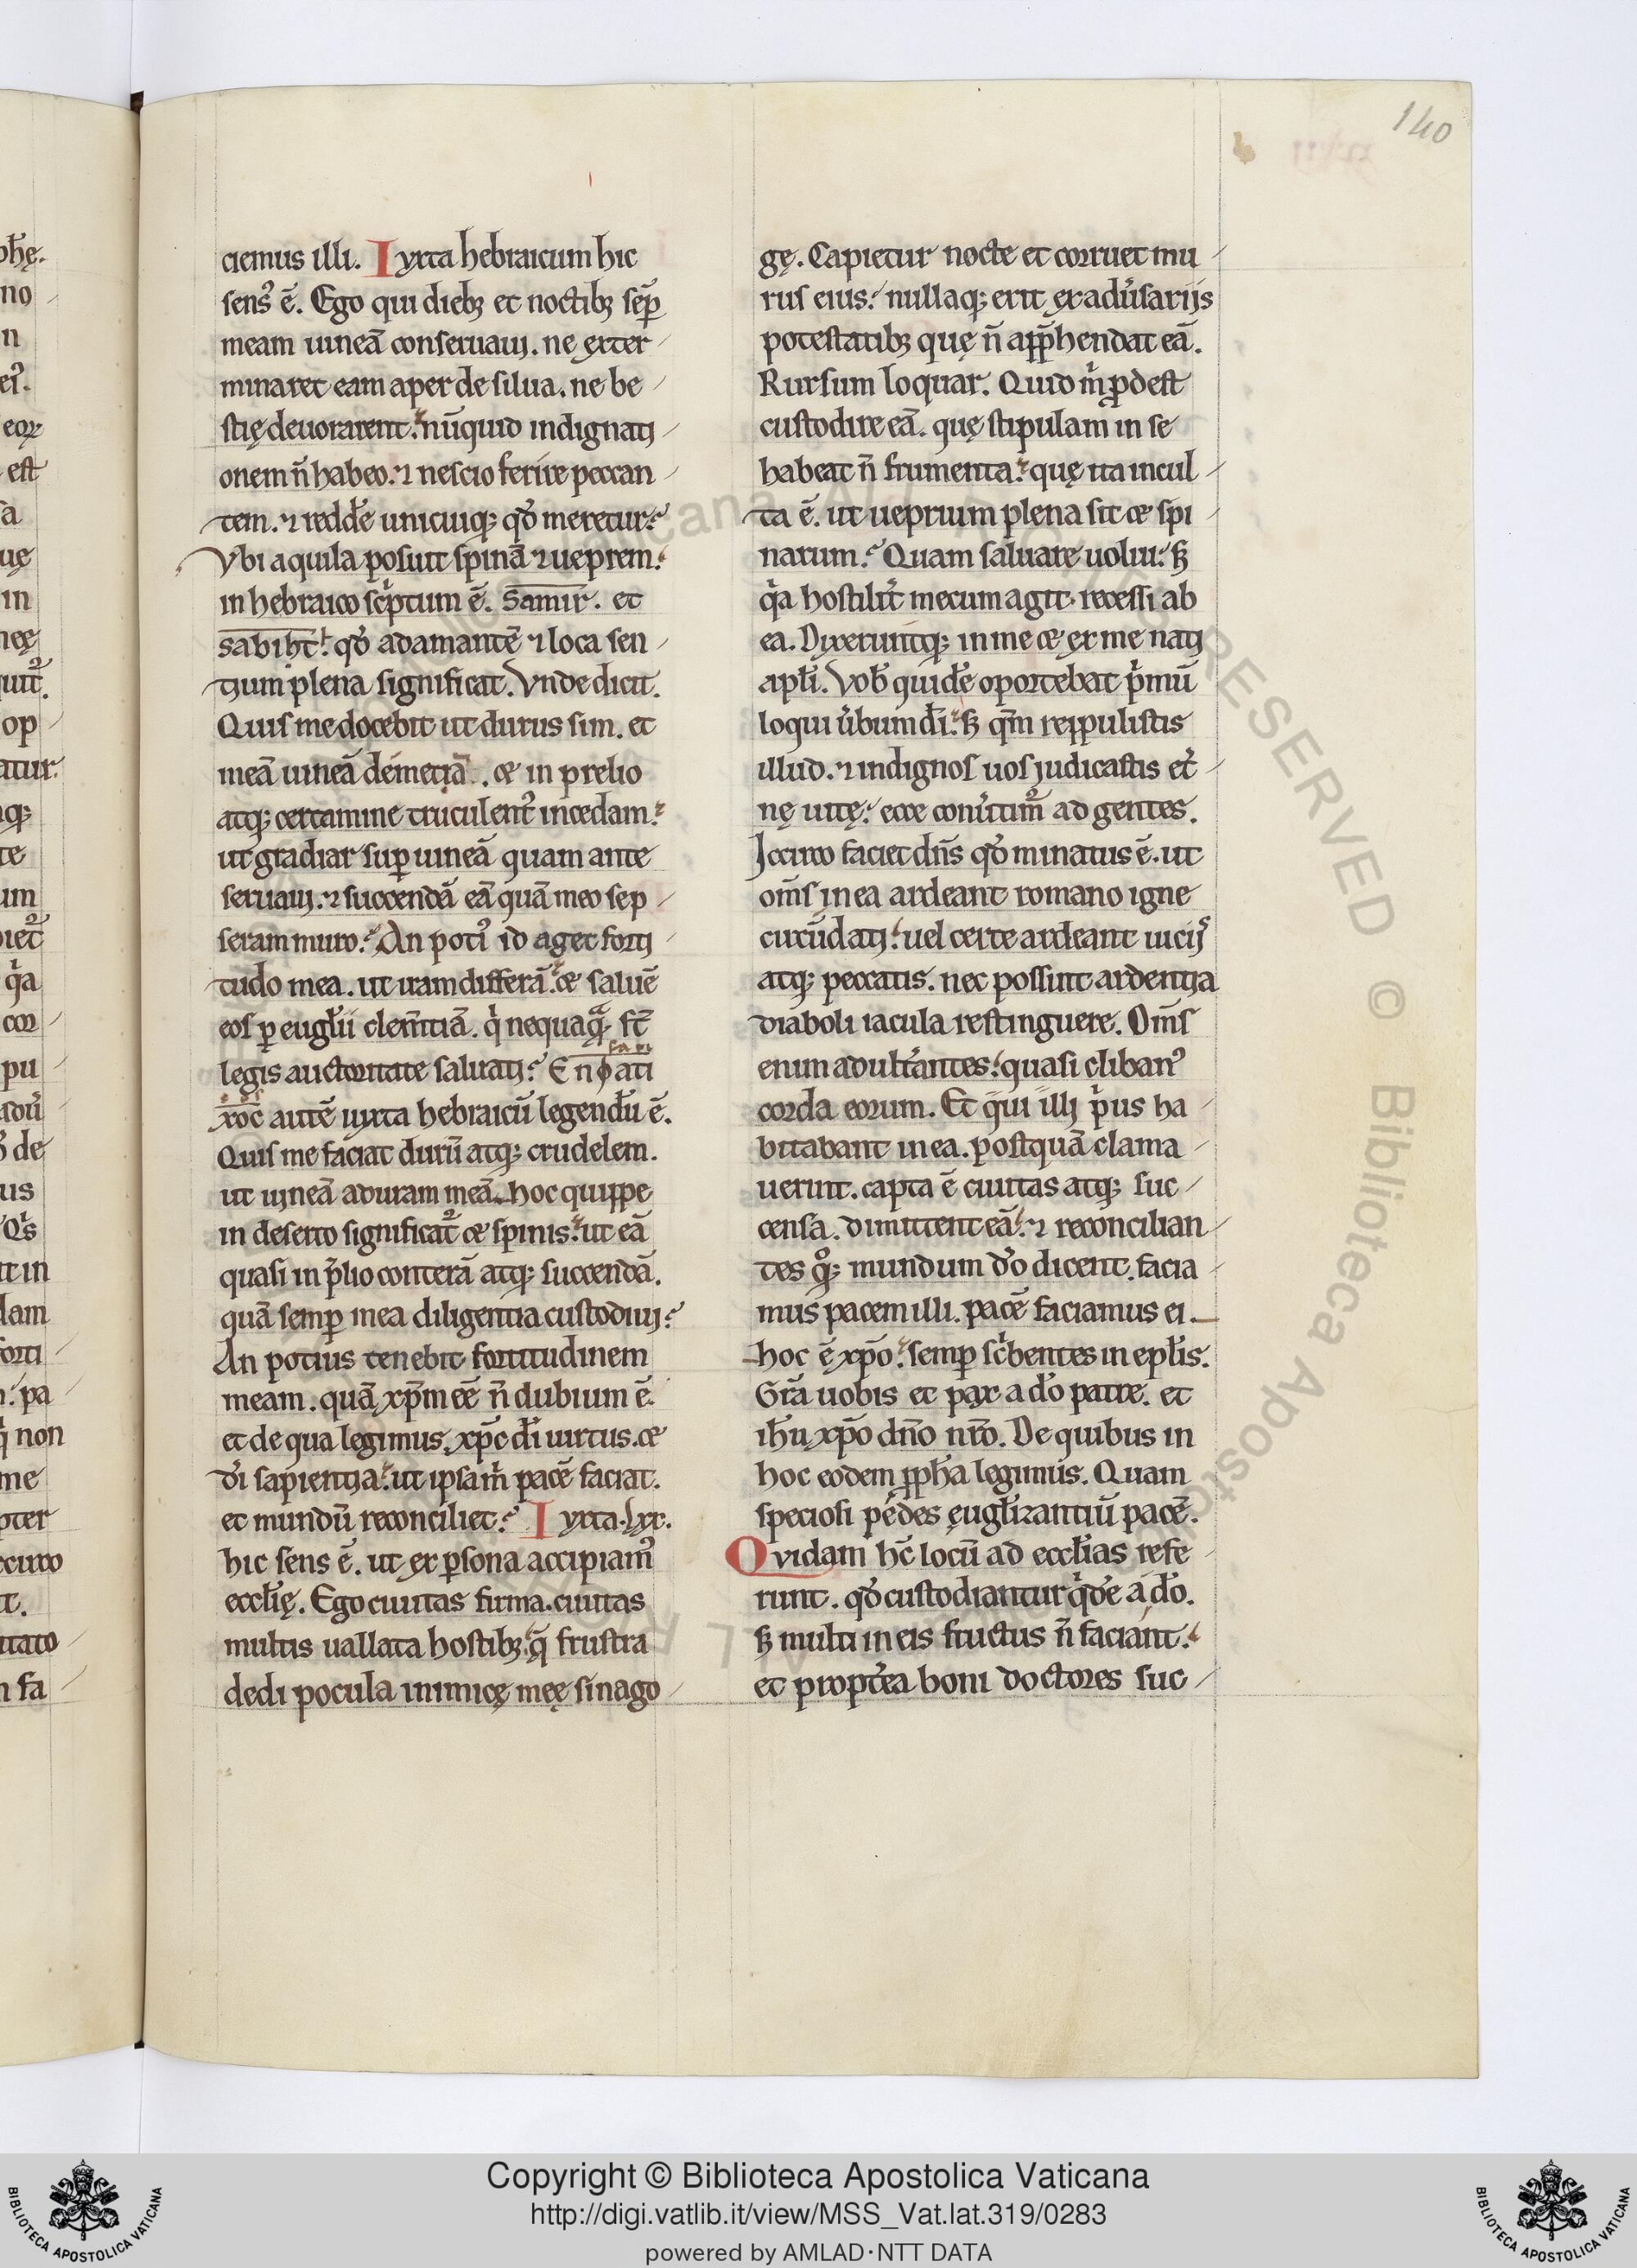 140
ciemus illi. Iyxta hebraicum hic
senſꝰ ē. Ego qui diebꝫ et noctibꝫ ſep̄
meam uineā conſeruaui. ne exter
minaret eam aper de ſilua. ne be
ſtię deuorarent. nūquid indignati
onem n̄ habeo. ⁊ neſcio ferire peccan
tem. ⁊ redde unicuiqꝫ qđ meretur?
Vbi aquila poſuit ſpinā ⁊ ueprem.
in hebraico ſcͥptum ē. Samir. et
sabiht. qđ adamantē ⁊ loca ſen
tium plena ſignificat. Vnde dicit.
Quiſ me docebit ut durus ſim. et
meā uineā demetiā. & in prelio
atqꝫ certamine truculentꝰ incedam.
ut gradiar ſuꝑ uineā quam ante
ſeruaui. ⁊ ſuccendā eā quā meo ſep
ſeram muro. An potiꝰ id aget forti
tudo mea. ut iram differā. & ſaluē
eoſ ꝑ eugłii clem̄tiā. qͥ nequaqͣ̄ ſt̄
legis auctoritate ſaluati? Enφati
χοc autē iyxta hebraicū legendū ē.
Quiſ me faciat durū atqꝫ crudelem.
ut uineā aduram meā. hoc quippe
in deſerto ſignificatꝰ & ſpinis. ut eā
quaſi in p̄lio conterā atqꝫ ſuccendā.
quā ſemꝑ mea diligentia cuſtodiui?
An potius tenebit fortitudinem
meam. quā xp̄m eē n̄ dubium ē.
et de qua legimus. xp̄c di uirtus. &
di ſapientia. ut ipſa m̍ pacē faciat.
et mundū reconciliet? Iyxta. lxx.
hic ſens ē. ut ex ꝑſona accipiamꝰ
eccłię. Ego ciuitas firma. ciuitas
multis uallata hoſtibꝫ. q̄ fruſtra
dedi pocula inimicę męę ſinago
gę. Capietur nocte et corruet mu
ruſ eius. nullaqꝫ erit ex aduſariis
poteſtatibꝫ quę n̄ app̄hendat eā.
Rurſum loquar. Quid m̍ ꝓdeſt
cuſtodire eā. quę ſtipulam in ſe
habeat n̄ frumenta. quę ita incul
ta ē. ut ueprium plena ſit & ſpi
narum. Quam ſaluare uolui. ſꝫ
qͥa hoſtilit̍ mecum agit. receſſi ab
ea. Dixeruntqꝫ in me & ex me nati
apłi. Vob̄ quide oportebat pͥmū
loqui u̍bum di. ſꝫ qm̄ reppuliſtis
illud. ⁊ indignoſ uoſ judicaſtis et̍
nę uitę. ecce conu̍timꝰ ad gentes.
Iccirco faciet dn̄s qđ minatus ē. ut
om̄ſ in ea ardeant romano igne
circūdati. uel certe ardeant uiciiſ
atqꝫ peccatis. nec poſſint ardentia
diaboli iacula reſtinguere. Om̄ſ
enim adult̍antes. quaſi clibanꝰ
corda eorum. Et qui illi pͥus ha
bitabant in ea. poſtquā clama
uerint. capta ē ciuitas atqꝫ ſuc
cenſa. dimittent eā. ⁊ reconcilian
tes qͦqꝫ mundum do dicent. facia
mus pacem illi. pacē faciamus ei.
hoc ē xp̄o. ſemꝑ ſcͥbentes in epłis.
Gr̄a uobis et pax a do patre. et
ihu xp̄o dn̄o nr̄o. De quibus in
hoc eodem ꝓpha legimus. Quam
ſpecioſi pedes eugłizantiū pacē.
Quidam hc̄ locū ad eccłias refe
runt. qđ cuſtodiantur qͥde a do.
ſꝫ multi in eis fructus n̄ faciant.
et propt̍ea boni doctores ſuc
Copyright © Biblioteca Apostolica Vaticana
http://digi.vatlib.it/view/MSS_Vat.lat.319/0283
powered by AMLAD·NTT DATA
BIBLIOTECA APOSTOLICA VATICANA
BIBLIOTECA APOSTOLICA VATICANA